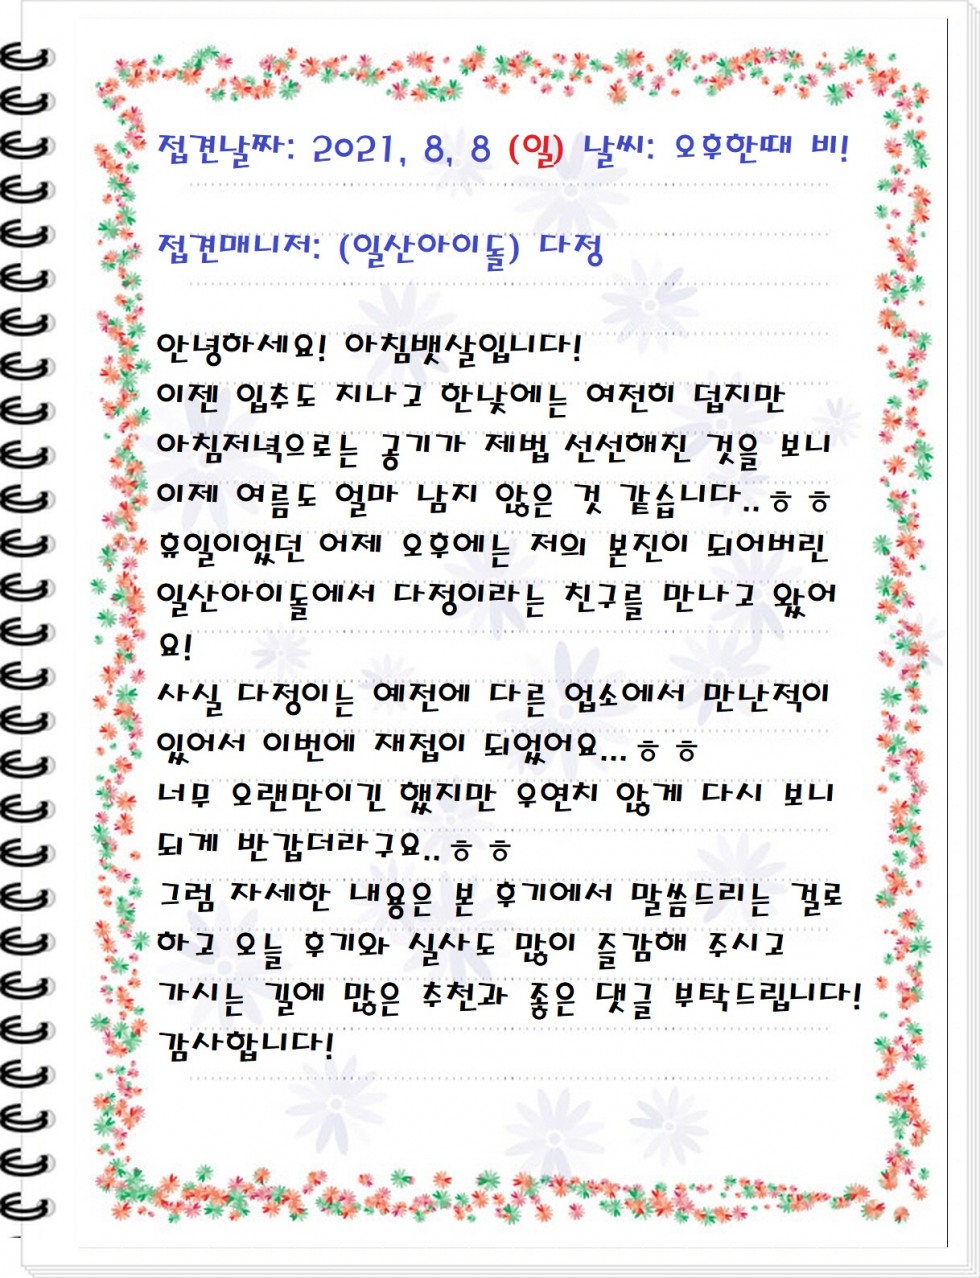 접견날짜: 2021, 8, 8 (일) 날씨: 오후한때 비!
접견매니저: (일산아이돌) 다정
안녕하세요! 아침뱃살입니다!
이젠 입추도 지나고 한낮에는 여전히 덥지만
아침저녁으로는 공기가 제법 선선해진 것을 보니
이제 여름도 얼마 남지 않은 것 같습니다..ㅎㅎ
휴일이었던 어제 오후에는 저의 본진이 되어버린
일산아이돌에서 다정이라는 친구를 만나고 왔어
요!
사실 다정이는 예전에 다른 업소에서 만난적이
있어서 이번에 재접이 되었어요...ㅎㅎ
너무 오랜만이긴 했지만 우연치 않게 다시 보니
되게 반갑더라구요..ㅎㅎ
그럼 자세한 내용은 본 후기에서 말씀드리는 걸로
하고 오늘 후기와 실사도 많이 즐감해 주시고
가시는 길에 많은 추천과 좋은 댓글 부탁드립니다!
감사합니다!